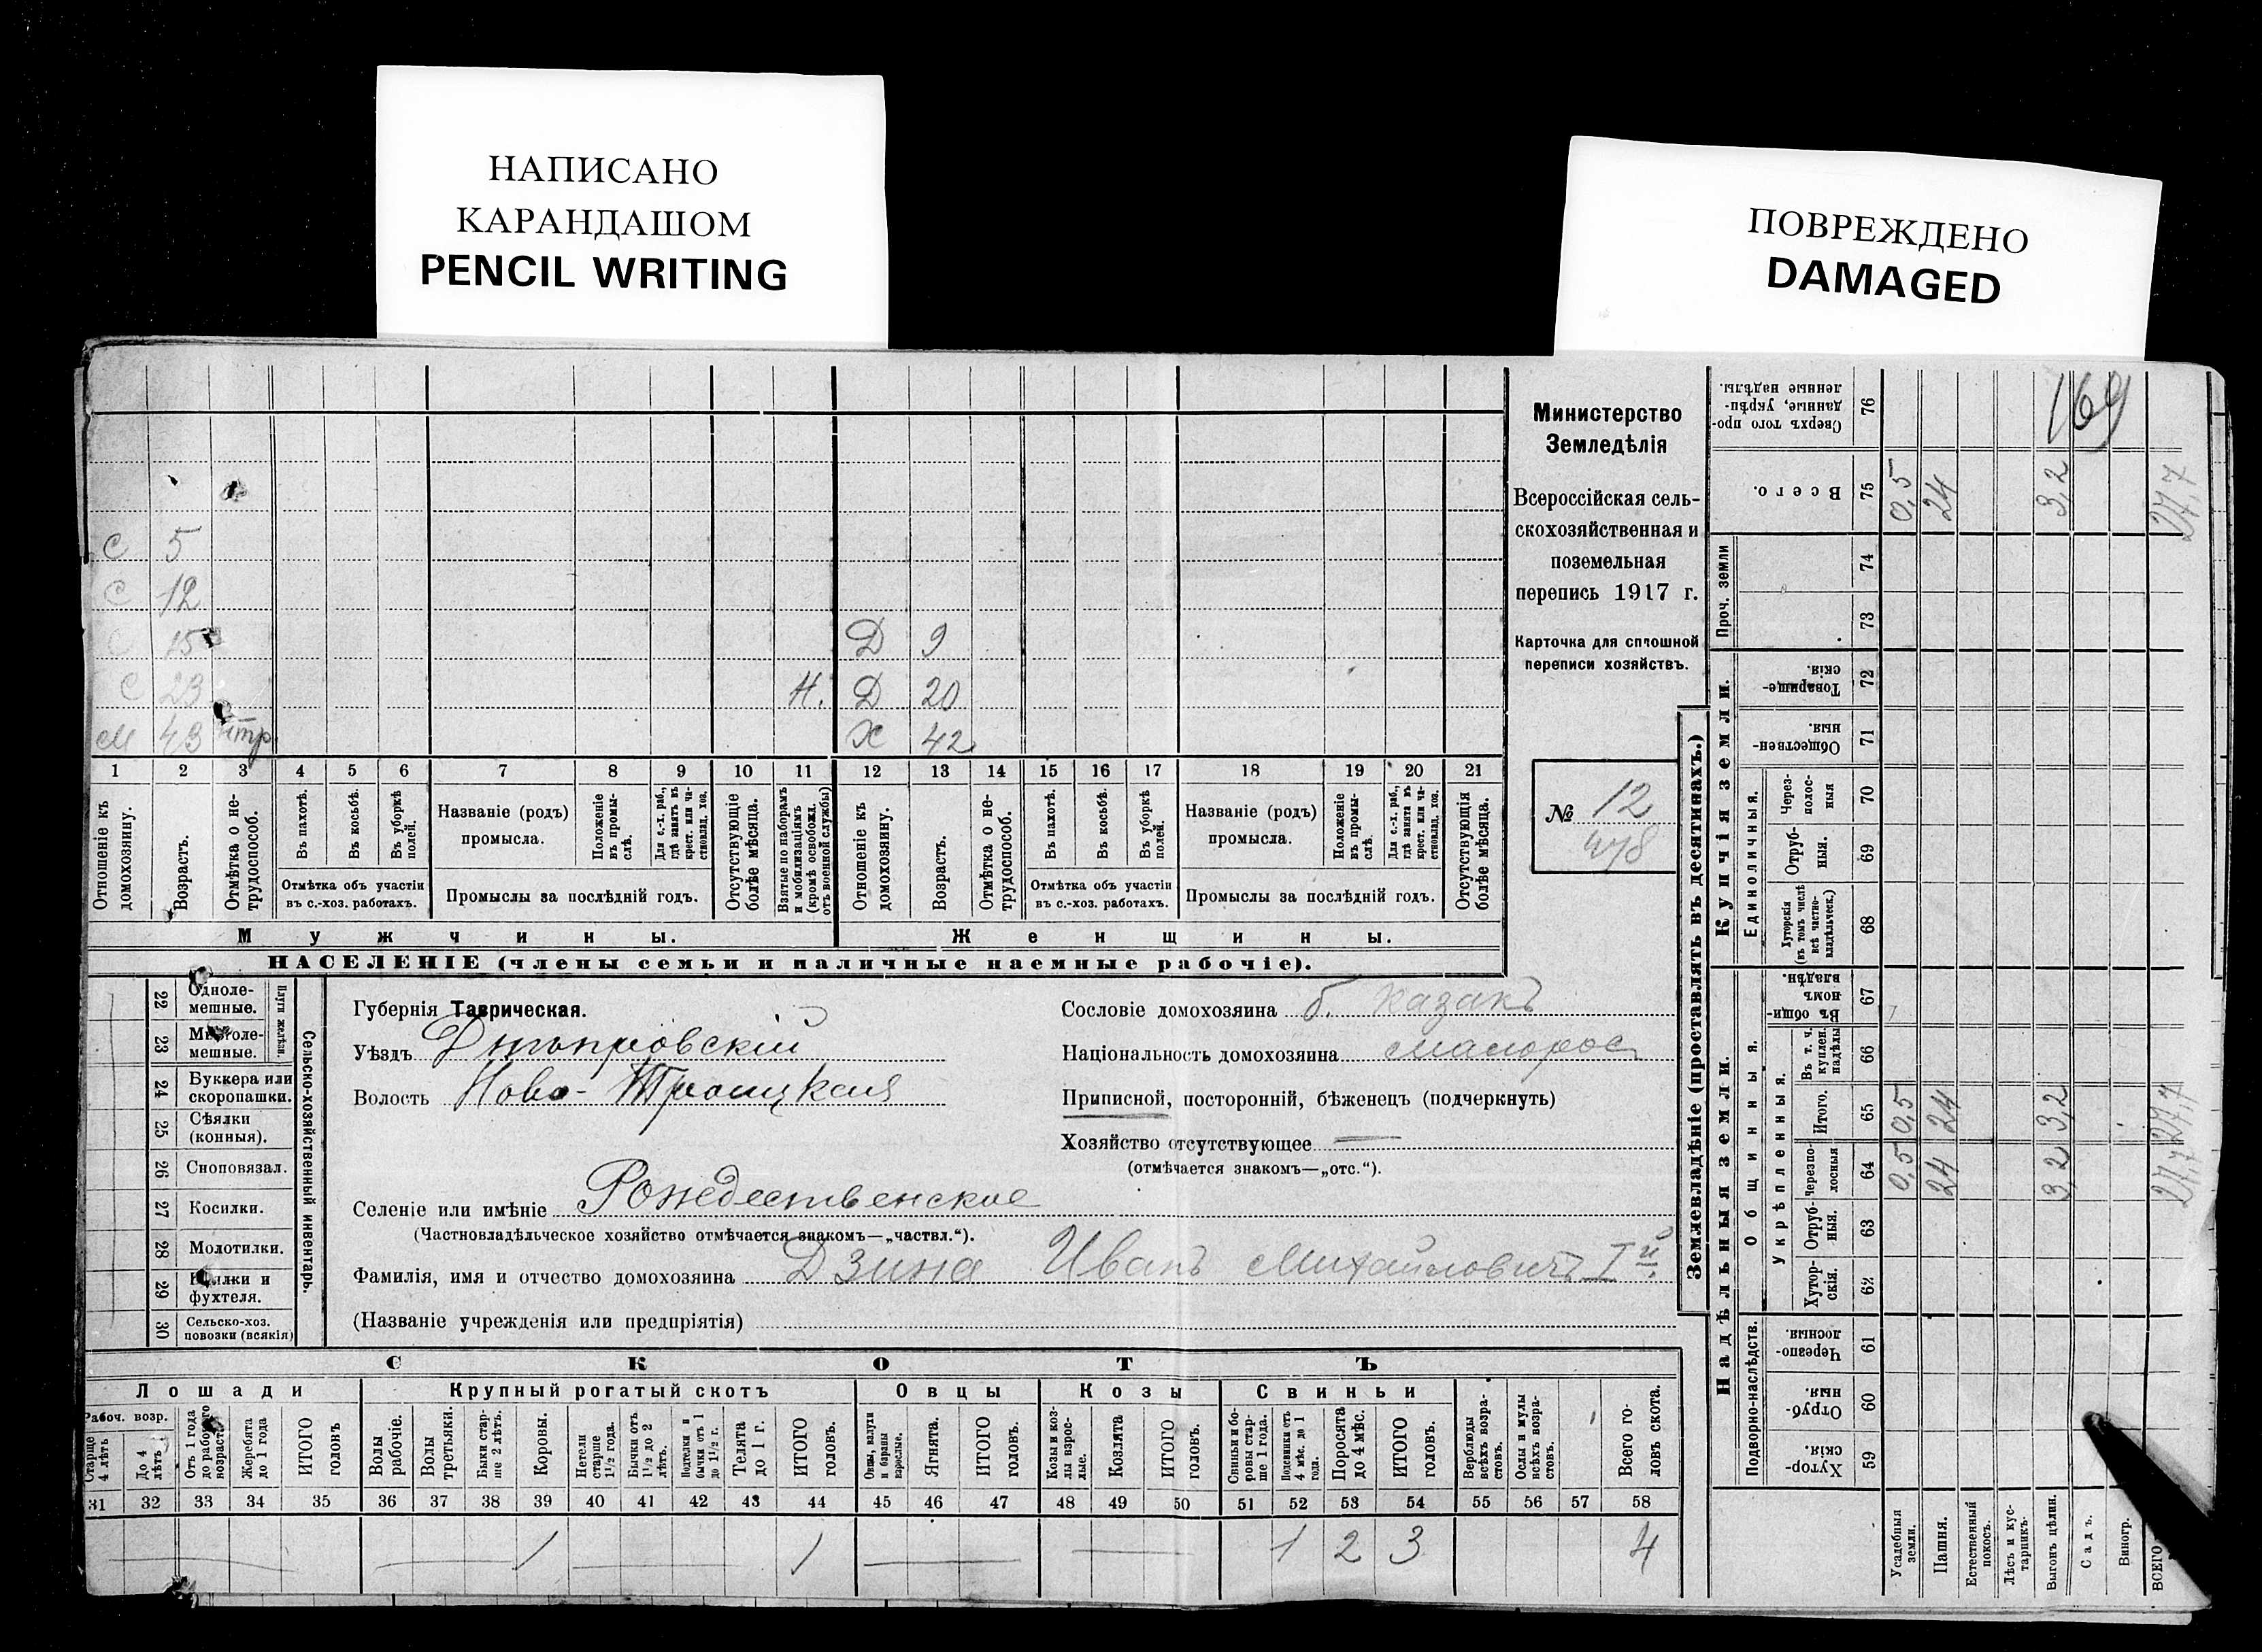 НАПИСАНО
КАРАНДАШОМ
PENCIL WRITING
ПОВРЕЖДЕНО
DAMAGED
С 5
С 12
С 15 Д 9
С 23 Н. Д 20
М 43 нтр. Ж 42
1 2 3 4 5 6 7 8 9 10 11 12 13 14 15 16 17 18 19 20 21
Отношеніе къ домохозяину.
Возрастъ.
Отмѣтка о нетрудоспособ.
Въ пахотѣ.
Въ косьбѣ.
Въ уборкѣ полей.
Отмѣтка объ участіи
въ с.-хоз. работахъ.
Названіе (родъ)
промысла.
Положеніе въ промыслѣ.
Для с.-х. раб., гдѣ занятъ въ крест. или частновлад. хоз.
Промыслы за послѣдній годъ.
Отсутствующіе болѣе мѣсяца.
Взятые по наборамъ и мобилизаціямъ (кромѣ освобожд. отъ военной службы)
Отношеніе къ домохозяину.
Возрастъ.
Отмѣтка о нетрудоспособ.
Въ пахотѣ.
Въ косьбѣ.
Въ уборкѣ полей.
Отмѣтка объ участіи
въ с.-хоз. работахъ.
Названіе (родъ)
промысла.
Положеніе въ промыслѣ.
Для с.-х. раб., гдѣ занята въ крест. или частновлад. хоз.
Промыслы за послѣдній годъ.
Отсутствующія болѣе мѣсяца.
Мужчины.
Женщины.
НАСЕЛЕНІЕ (члены семьи и наличные наемные рабочіе).
Министерство
Земледѣлія
Всероссійская сель-
скохозяйственная и
поземельная
перепись 1917 г.
Карточка для сплошной
переписи хозяйствъ.
№ 12
478
22 Однолемешные.
23 Многолемешные.
Плуги желѣзн.
24 Буккера или скоропашки.
25 Сѣялки (конныя).
26 Сноповязал.
27 Косилки.
28 Молотилки.
29 Вѣялки и фухтеля.
30 Сельско-хоз. повозки (всякія)
Сельско-хозяйственный инвентарь.
Губернія Таврическая.
Уѣздъ Днѣпровскій
Волость Ново-Троицкая
Сословіе домохозяина б. казакъ
Національность домохозяина малорос
Приписной, посторонній, бѣженецъ (подчеркнуть)
Хозяйство отсутствующее —
(отмѣчается знакомъ—„отс.“).
Селеніе или имѣніе Рождественское
(Частновладѣльческое хозяйство отмѣчается знакомъ—„частвл.“).
Фамилія, имя и отчество домохозяина Дзина Иванъ Михайловичъ Iй.
(Названіе учрежденія или предпріятія)
СКОТЪ
Лошади
Крупный рогатый скотъ
Овцы
Козы
Свиньи
Рабоч. возр.
Старше 4 лѣтъ
До 4 лѣтъ
Отъ 1 года до рабочаго возраста
Жеребята до 1 года
ИТОГО головъ
Волы рабочіе.
Волы третьяки.
Быки старше 2 лѣтъ.
Коровы.
Нетели старше 1½ года.
Бычки отъ 1½ до 2 лѣтъ.
Подтелки и бычки отъ 1 до 1½ г.
Телята до 1 г.
ИТОГО головъ.
Овцы, валухи и бараны взрослые.
Ягнята.
ИТОГО головъ.
Козы и козлы взрослые.
Козлята
ИТОГО головъ.
Свиньи и боровы старше 1 года.
Подсвинки отъ 4 мѣс. до 1 года.
Поросята до 4 мѣс.
ИТОГО головъ.
Верблюды всѣхъ возрастовъ.
Ослы и мулы всѣхъ возрастовъ.
Всего головъ скота.
31 32 33 34 35 36 37 38 39 40 41 42 43 44 45 46 47 48 49 50 51 52 53 54 55 56 57 58
1 1 1 2 3 4
Землевладѣніе (проставлять въ десятинахъ.)
Купчія земли.
Надѣльныя земли.
Проч. земли
Единоличныя.
Общинныя.
Укрѣпленныя.
Подворно-наслѣдств.
Сверхъ того проданные, укрѣпленные надѣлы. 76
Всего. 75
74
73
Товарищескія. 72
Общественныя. 71
Черезполосныя 70
Отрубныя. 69
Хуторскія (въ томъ числѣ всѣ частновладѣльческ.) 68
Въ общинномъ владѣн. 67
Въ т. ч. куплен. надѣлы 66
Итого. 65
Черезполосныя 64
Отрубныя. 63
Хуторскія. 62
Черезполосныя. 61
Отрубныя. 60
Хуторскія. 59
169
0,5 24 3,2 27,7
0,5 24 3,2 27,7
0,5 24 3,2 27,7
Усадебныя земли.
Пашня.
Естественный покосъ.
Лѣсъ и кустарникъ.
Выгонъ цѣлин.
Садъ.
Виногр.
ВСЕГО